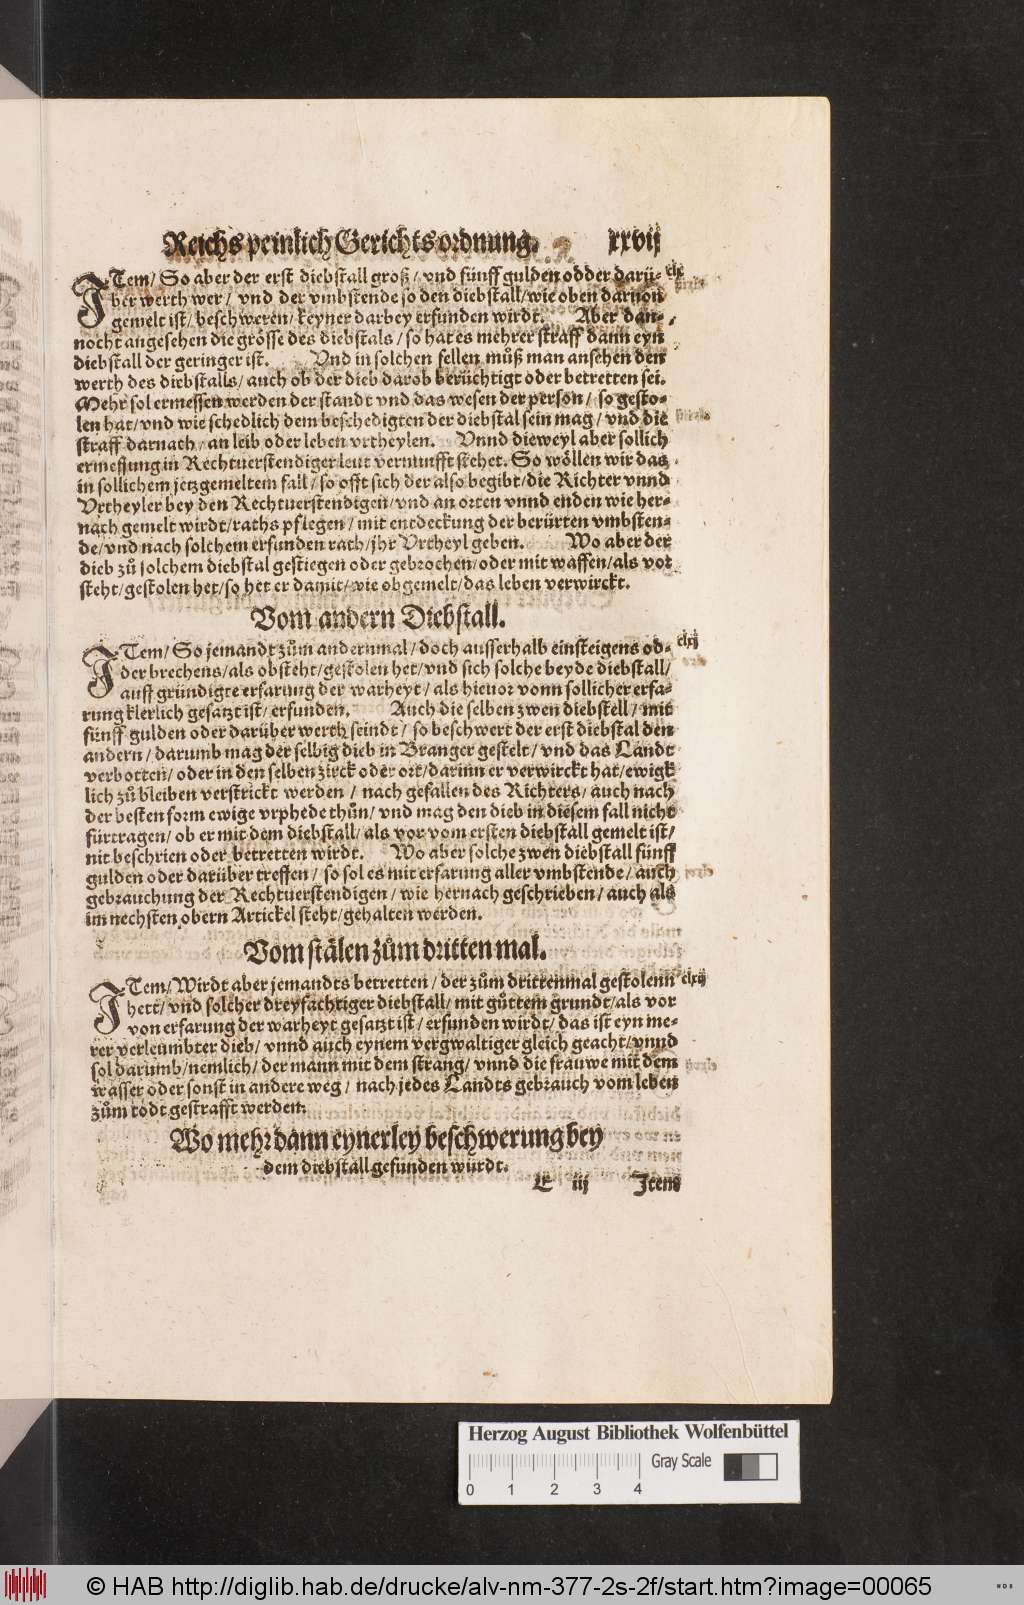 Reichs peinlich Gerichtsordnung. xxvij
ITem/ So aber der erst diebstall groß/ vnd fünff gulden odder darü- clx
ber werth wer/ vnd der vmbstende so den diebstall/wie oben daruon
gemelt ist/ beschweren/ keyner darbey erfunden wirdt. Aber dan-
nocht angesehen die grösse des diebstals/ so hat es mehrer straff dann eyn
diebstall der geringer ist. Vnd in solchen fellen můß man ansehen den
werth des diebstalls/ auch ob der dieb darob berüchtigt oder betretten sei.
Mehr sol ermessen werden der standt vnd das wesen der person/ so gesto-
len hat/ vnd wie schedlich dem beschedigten der diebstal sein mag/ vnd die
straff darnach/ an leib oder leben vrtheylen. Vnnd dieweyl aber sollich
ermessung in Rechtuerstendiger leut vernunfft stehet. So wöllen wir das
in sollichem jetzgemeltem fall/ so offt sich der also begibt/die Richter vnnd
Vrtheyler bey den Rechtuerstendigen/ vnd an orten vnnd enden wie her-
nach gemelt wirdt/raths pflegen/ mit entdeckung der berürten vmbsten-
de/ vnd nach solchem erfunden rath/ jhr Vrtheyl geben. Wo aber der
dieb zů solchem diebstal gestiegen oder gebrochen/oder mit waffen/als vor
steht/ gestolen het/ so het er damit/ wie obgemelt/ das leben verwirckt.
Vom andern Diebstall.
ITem/ So jemandt zům andernmal/ doch ausserhalb einsteigens od- clxj
der brechens/als obsteht/gestolen het/vnd sich solche beyde diebstall/
auff gründigte erfarung der warheyt/ als hieuor vonn sollicher erfa-
rung klerlich gesatzt ist/ erfunden. Auch die selben zwen diebstell/ mit
fünff gulden oder darüber werth seindt/ so beschwert der erst diebstal den
andern/ darumb mag der selbig dieb in Branger gestelt/ vnd das Landt
verbotten/ oder in den selben zirck oder ort/darinn er verwirckt hat/ewigk
lich zů bleiben verstrickt werden/ nach gefallen des Richters/ auch nach
der besten form ewige vrphede thůn/ vnd mag den dieb in diesem fall nicht
fürtragen/ ob er mit dem diebstall/ als vor vom ersten diebstall gemelt ist/
nit beschrien oder betretten wirdt. Wo aber solche zwen diebstall fünff
gulden oder darüber treffen/ so sol es mit erfarung aller vmbstende/ auch
gebrauchung der Rechtuerstendigen/ wie hernach geschrieben/ auch als
im nechsten obern Artickel steht/gehalten werden.
Vom stälen zům dritten mal.
ITem/ Wirdt aber jemandts betretten/ der zům drittenmal gestolenn clxij
hett/ vnd solcher dreyfachtiger diebstall/ mit gůttem grundt/als vor
von erfarung der warheyt gesatzt ist/ erfunden wirdt/ das ist eyn me-
rer verleumbter dieb/ vnnd auch eynem vergwaltiger gleich geacht/vnnd
sol darumb/nemlich/ der mann mit dem strang/ vnnd die frauwe mit dem
wasser oder sonst in andere weg/ nach jedes Landts gebrauch vom leben
zům todt gestrafft werden.
Wo mehr dann eynerley beschwerung bey
dem diebstall gefunden würdt.
E iij Item
Herzog August Bibliothek Wolfenbüttel
Gray Scale
0 1 2 3 4
© HAB http://diglib.hab.de/drucke/alv-nm-377-2s-2f/start.htm?image=00065